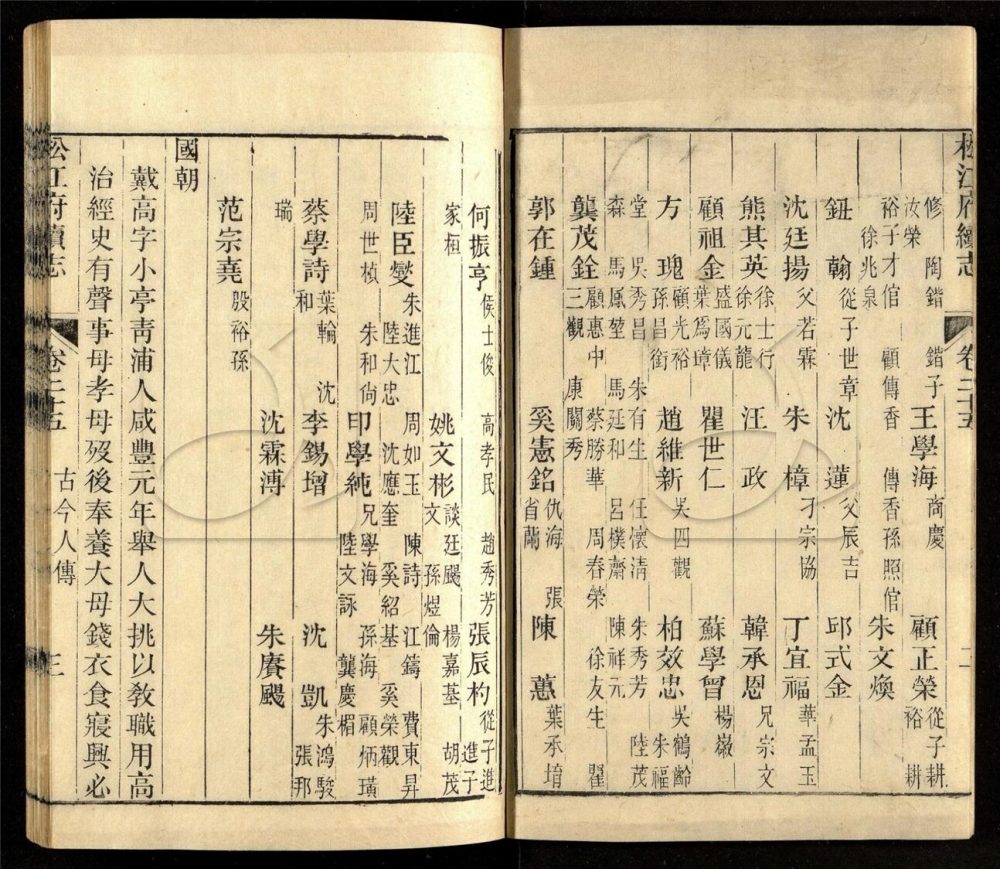 松江府續志 卷二十五 二
修 陶鍇 鍇子
汝榮
王學海 商慶 顧正榮 從子耕
裕 耕
裕子才倌 顧傳香 傳香孫照倌
徐兆泉
朱文煥
鈕翰 從子世章 沈蓮 父辰吉 邱式金
沈廷揚 父若霖 朱樟 刁宗協 丁宜福 華孟玉
熊其英 徐士行 徐元龍 汪政 韓承恩 兄宗文
顧祖金 盛國儀 葉爲璋 瞿世仁 蘇學曾 楊
方瑰 顧光裕 孫昌銜 趙維新 吳四觀 柏效忠 吳鶴齡 朱福
堂 吳秀昌 朱有生 任懷清 朱秀芳 陸茂
森 馬鳳堃 馬廷和 呂樸齋 陳祥元
龔茂銓 顧惠中 蔡勝華 周春榮 徐友生 瞿
三觀 康關秀
郭在鍾 奚憲銘 仇海 張
省蘭
陳蕙 葉承堉
何振亨 侯士俊 高孝民 趙秀芳 張辰杓 從子進
進子
家桓 姚文彬 談廷颺 楊嘉基 胡茂
文 孫煜倫
陸臣燮 朱進江 周如玉 陳詩 江鑄 費東昇
陸大忠 沈應奎 奚紹基 奚榮觀
周世楨 朱和尚 印學純 兄學海 孫海 顧炳璜
陸文詠 龔慶楣
蔡學詩 葉輪 沈
和
李錫增 沈凱 朱鴻駿
張邦
瑞 沈霖溥 朱賡颺
范宗堯 殷裕孫
國朝
戴高字小亭青浦人咸豐元年舉人大挑以敎職用高
治經史有聲事母孝母歿後奉養大母錢衣食寢興必
松江府續志 卷二十五 古今人傳 三